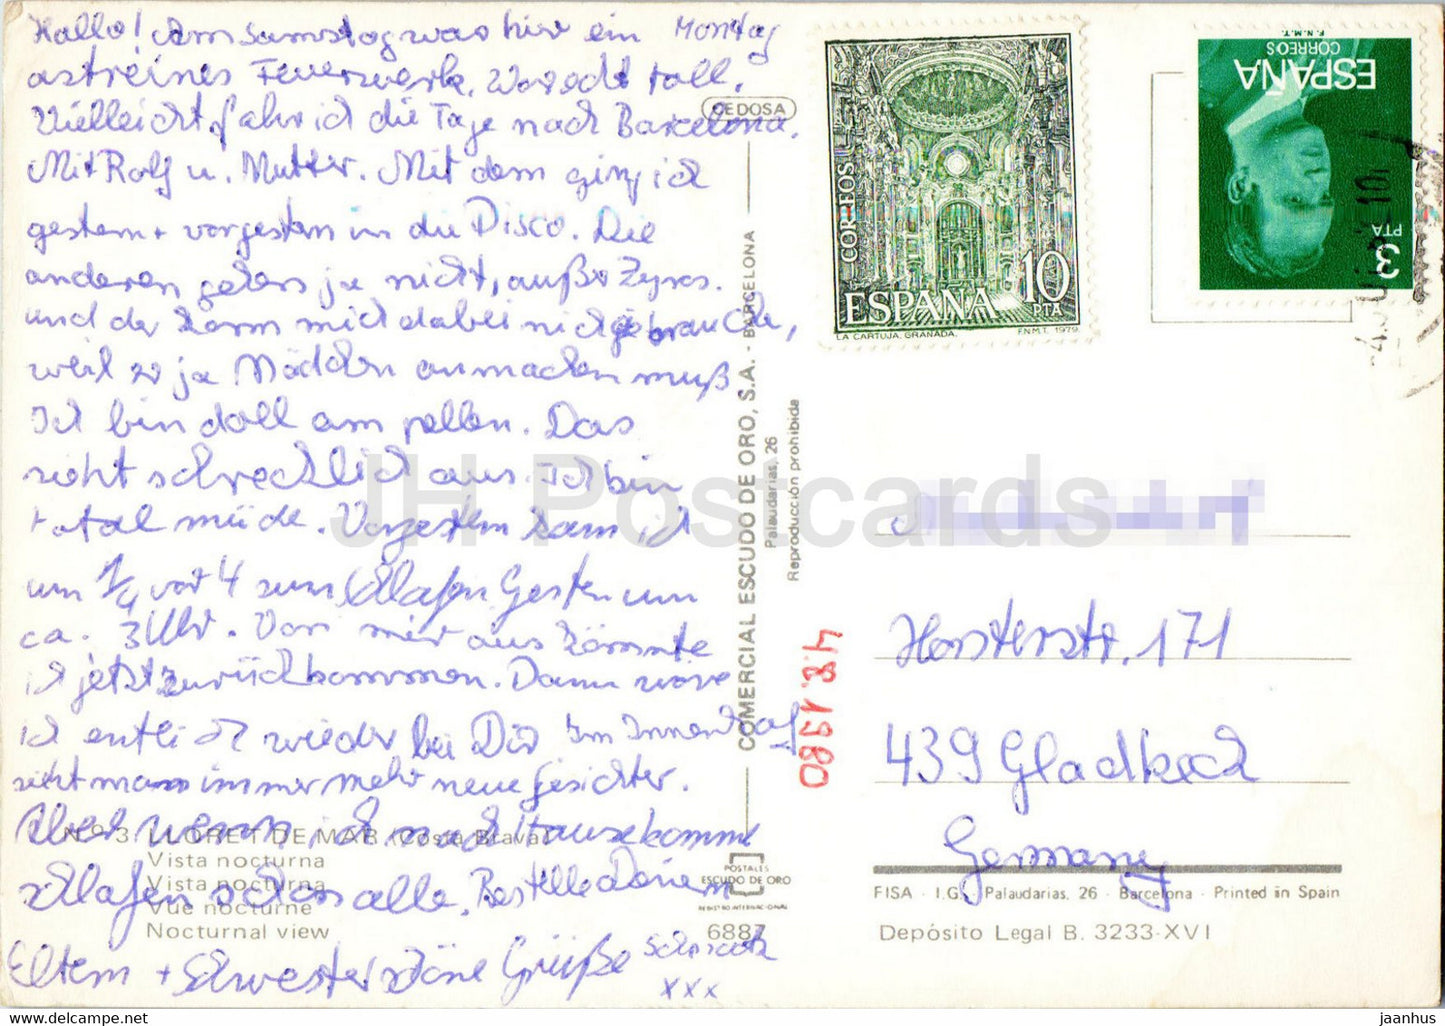 Hallo! Am Samstag war hier ein Montag
astreines Feuerwerk. War echt toll.
Vielleicht fahr ich die Tage nach Barcelona.
Mit Rolf u. Mutter. Mit dem ging ich
gestern + vorgestern in die Disco. Die
anderen gehen ja nicht, außer Zyros.
und der kann mich dabei nicht gebrauchen,
weil er ja Mädchen anmachen muß
Ich bin doll am pellen. Das
sieht schrecklich aus. Ich bin
total müde. Vorgestern kam ich
um 1/4 vor 4 zum schlafen Gestern um
ca. 3 Uhr. Von mir aus könnte
ich jetzt zurückkommen. Dann wäre
ich entlich wieder bei Dir Im Innenhof
sieht man immer mehr neue Gesichter.
Aber wenn ich nach Hause komme
schlafen schon alle. Bestelle Deinen
Eltern + Schwester schöne Grüße Schnack
xxx
CEDOSA
COMERCIAL ESCUDO DE ORO, S.A. - BARCELONA
Palaudarias, 26
Reproducción prohibida
4.8.1980
N.º 3 LLORET DE MAR (Costa Brava)
Vista nocturna
Vista nocturna
Vue nocturne
Nocturnal view
POSTALES
ESCUDO DE ORO
REGISTRO INTERNACIONAL
6887
CORREOS
ESPAÑA
10
PTA
LA CARTUJA. GRANADA
F.N.M.T. 1979
F.N.M.T.
CORREOS
ESPAÑA
3
PTA
Horsterstr. 171
439 Gladbeck
Germany
FISA - I.G. Palaudarias, 26 - Barcelona - Printed in Spain
Depósito Legal B. 3233-XVI
JH Postcards
jaanhus © www.delcampe.net